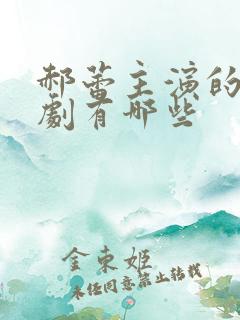 郝蕾主演的
劇有哪些
金東姬
未经同意禁止转载